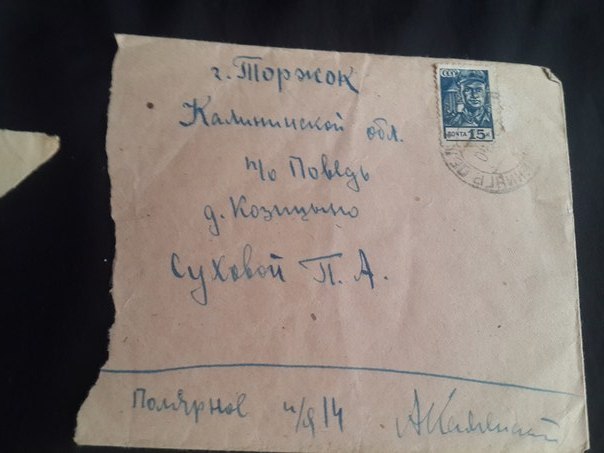 г. Торжок
СССР
Калининской обл.
ПОЧТА 15 К
п/о Поведь
д. Козицыно
Суховой П. А.
Полярное п/я 14